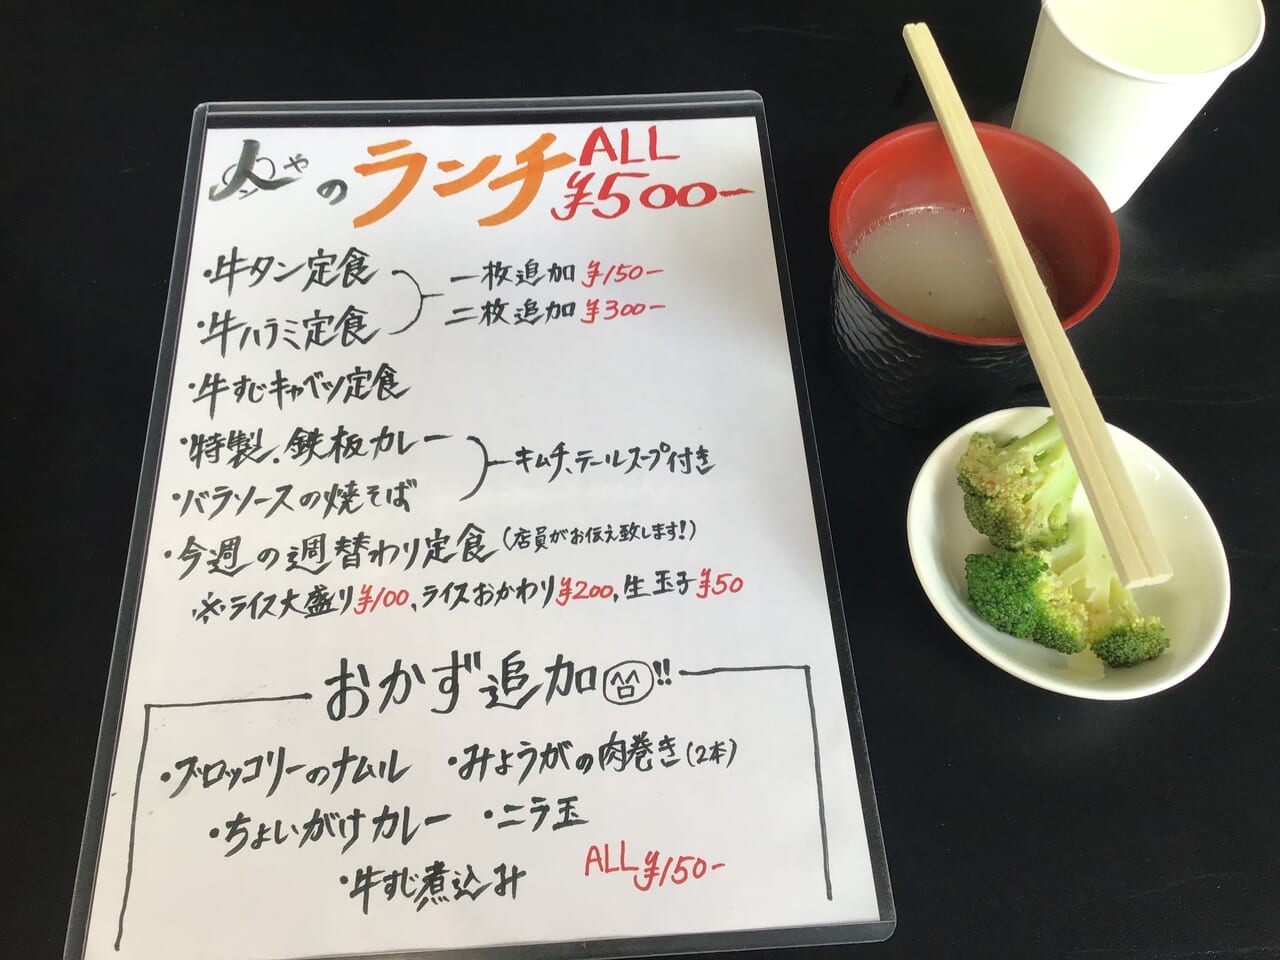 人やのランチ ALL ¥500-
・牛タン定食
一枚追加 ¥150-
・牛ハラミ定食
二枚追加 ¥300-
・牛すじキャベツ定食
・特製.鉄板カレー
キムチ、テールスープ付き
・バラソースの焼そば
・今週の週替わり定食(店員がお伝え致します!)
・※ライス大盛り¥100、ライスおかわり¥200、生玉子¥50
おかず追加!!
・ブロッコリーのナムル ・みょうがの肉巻き(2本)
・ちょいがけカレー ・ニラ玉
・牛すじ煮込み ALL ¥150-